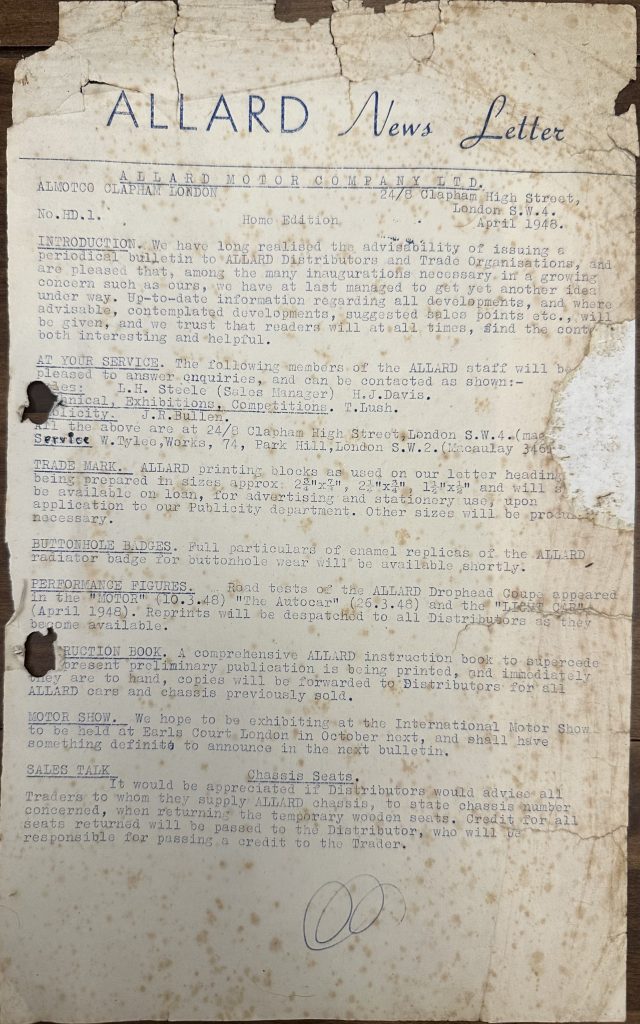 ALLARD News Letter
ALLARD MOTOR COMPANY LTD.
ALMOTCO CLAPHAM LONDON 24/8 Clapham High Street,
London S.W.4.
No.HD.1. Home Edition April 1948.
INTRODUCTION. We have long realised the advisability of issuing a
periodical bulletin to ALLARD Distributors and Trade Organisations, and
are pleased that, among the many inaugurations necessary in a growing
concern such as ours, we have at last managed to get yet another idea
under way. Up-to-date information regarding all developments, and where
advisable, contemplated developments, suggested sales points etc., will
be given, and we trust that readers will at all times, find the cont
both interesting and helpful.
AT YOUR SERVICE. The following members of the ALLARD staff will be
pleased to answer enquiries, and can be contacted as shown:-
les: L.H. Steele (Sales Manager) H.J.Davis.
nical, Exhibitions, Competitions. T.Lush.
licity. J.R.Bullen.
All the above are at 24/8 Clapham High Street,London S.W.4.(mac
Service W.Tylee,Works, 74, Park Hill,London S.W.2.(Macaulay 346
TRADE MARK. ALLARD printing blocks as used on our letter heading
being prepared in sizes approx: and will
be available on loan, for advertising and stationery use, upon
application to our Publicity department. Other sizes will be produ
necessary.
BUTTONHOLE BADGES. Full particulars of enamel replicas of the ALLARD
radiator badge for buttonhole wear will be available shortly.
PERFORMANCE FIGURES. Road tests of the ALLARD Drophead Coupe appeared
in the "MOTOR" (10.3.48) "The Autocar" (26.3.48) and the "LIGHT CAR"
(April 1948). Reprints will be despatched to all Distributors as they
become available.
TRUCTION BOOK. A comprehensive ALLARD instruction book to supercede
present preliminary publication is being printed, and immediately
they are to hand, copies will be forwarded to Distributors for all
ALLARD cars and chassis previously sold.
MOTOR SHOW. We hope to be exhibiting at the International Motor Show
to be held at Earls Court London in October next, and shall have
something definite to announce in the next bulletin.
SALES TALK Chassis Seats.
It would be appreciated if Distributors would advise all
Traders to whom they supply ALLARD chassis, to state chassis number
concerned, when returning the temporary wooden seats. Credit for all
seats returned will be passed to the Distributor, who will be
responsible for passing a credit to the Trader.